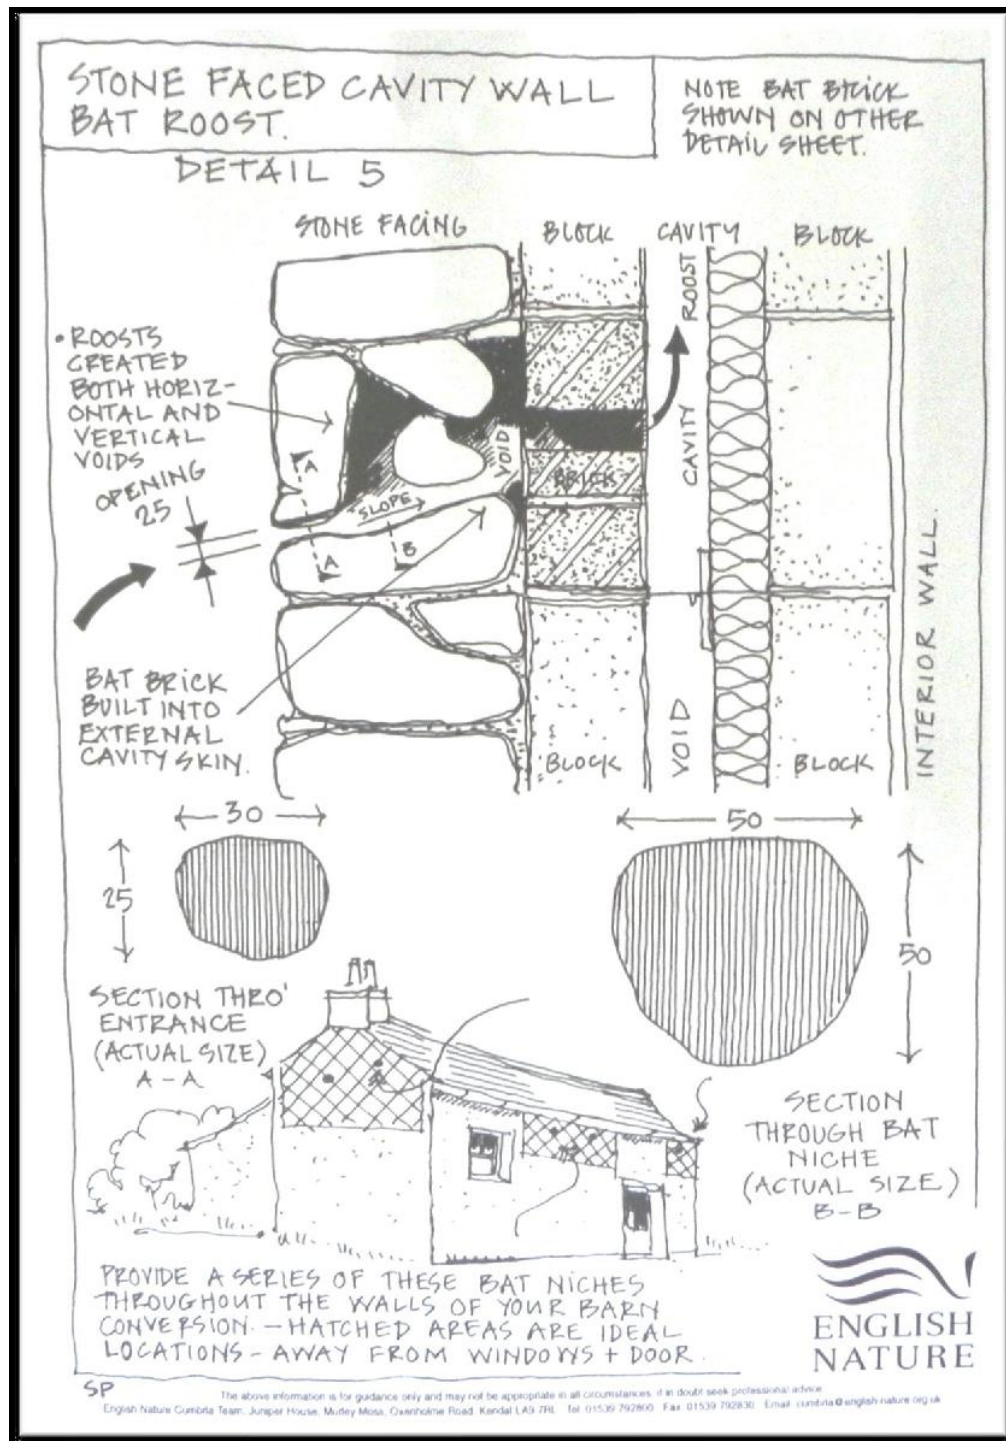 STONE FACED CAVITY WALL
BAT ROOST.
NOTE BAT BRICK
SHOWN ON OTHER
DETAIL SHEET.
DETAIL 5
STONE FACING
BLOCK
CAVITY
BLOCK
ROOST
• ROOSTS
CREATED
BOTH HORIZ-
ONTAL AND
VERTICAL
VOIDS
OPENING
25
A
VOID
CAVITY
BRICK
SLOPE
A
B
BAT BRICK
BUILT INTO
EXTERNAL
CAVITY SKIN.
BLOCK
VOID
BLOCK
INTERIOR WALL.
30
25
50
50
SECTION THRO'
ENTRANCE
(ACTUAL SIZE)
A-A
SECTION
THROUGH BAT
NICHE
(ACTUAL SIZE)
B-B
PROVIDE A SERIES OF THESE BAT NICHES
THROUGHOUT THE WALLS OF YOUR BARN
CONVERSION. - HATCHED AREAS ARE IDEAL
LOCATIONS - AWAY FROM WINDOWS + DOOR.
ENGLISH
NATURE
SP
The above information is for guidance only and may not be appropriate in all circumstances. if in doubt seek professional advice
English Nature Cumbria Team, Juniper House, Murley Moss, Oxenholme Road, Kendal LA9 7RL Tel: 01539 792800 Fax: 01539 792830 Email: cumbria@english-nature.org.uk